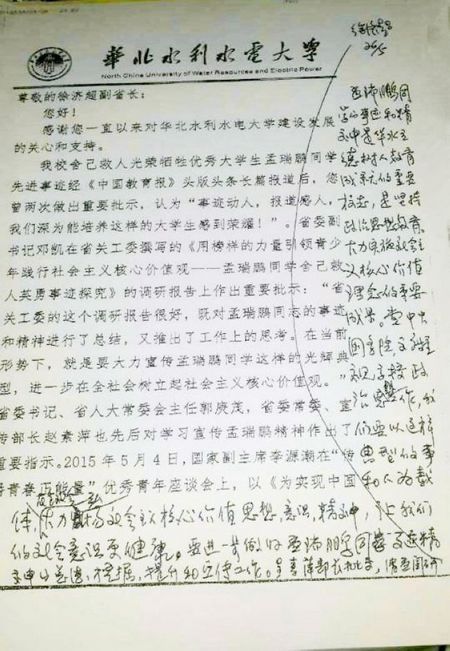 華北水利水电大学
North China University of Water Resources and Electric Power
尊敬的徐济超副省长：
您好！
感谢您一直以来对华北水利水电大学建设发展
的关心和支持。
我校舍己救人光荣牺牲优秀大学生孟瑞鹏同学
先进事迹经《中国教育报》头版头条长篇报道后，您
曾两次做出重要批示，认为“事迹动人，报道感人，
我们深为能培养这样的大学生感到荣耀！”。省委副
书记邓凯在省关工委撰写的《用榜样的力量引领青少
年践行社会主义核心价值观——孟瑞鹏同学舍己救
人英勇事迹探究》的调研报告上作出重要批示：“省
关工委的这个调研报告很好，既对孟瑞鹏同志的事迹
和精神进行了总结，又推出了工作上的思考。在当前
形势下，就是要大力宣传孟瑞鹏同学这样的光辉典
型，进一步在全社会树立起社会主义核心价值观。”
省委书记、省人大常委会主任郭庚茂，省委常委、宣
传部长赵素萍也先后对学习宣传孟瑞鹏精神作出了
重要指示。2015年5月4日，国家副主席李源潮在“传
青春正能量”优秀青年座谈会上，以《为实现中国
孟瑞鹏同
学的事迹和精
神是华水立
德树人教育
成果的重要
标志，是坚持
政治思想教育，
大力实施社会主
义核心价值
理念的重要
成果。党中央
国务院
治思想工作，我
们要以这样
典型的事
和人为载
体，大力弘扬社会主义核心价值思想、意识、精神，让我们
的社会意识更健康。要进一步做好孟瑞鹏同学事迹精
神的总结、挖掘、提升和宣传工作。